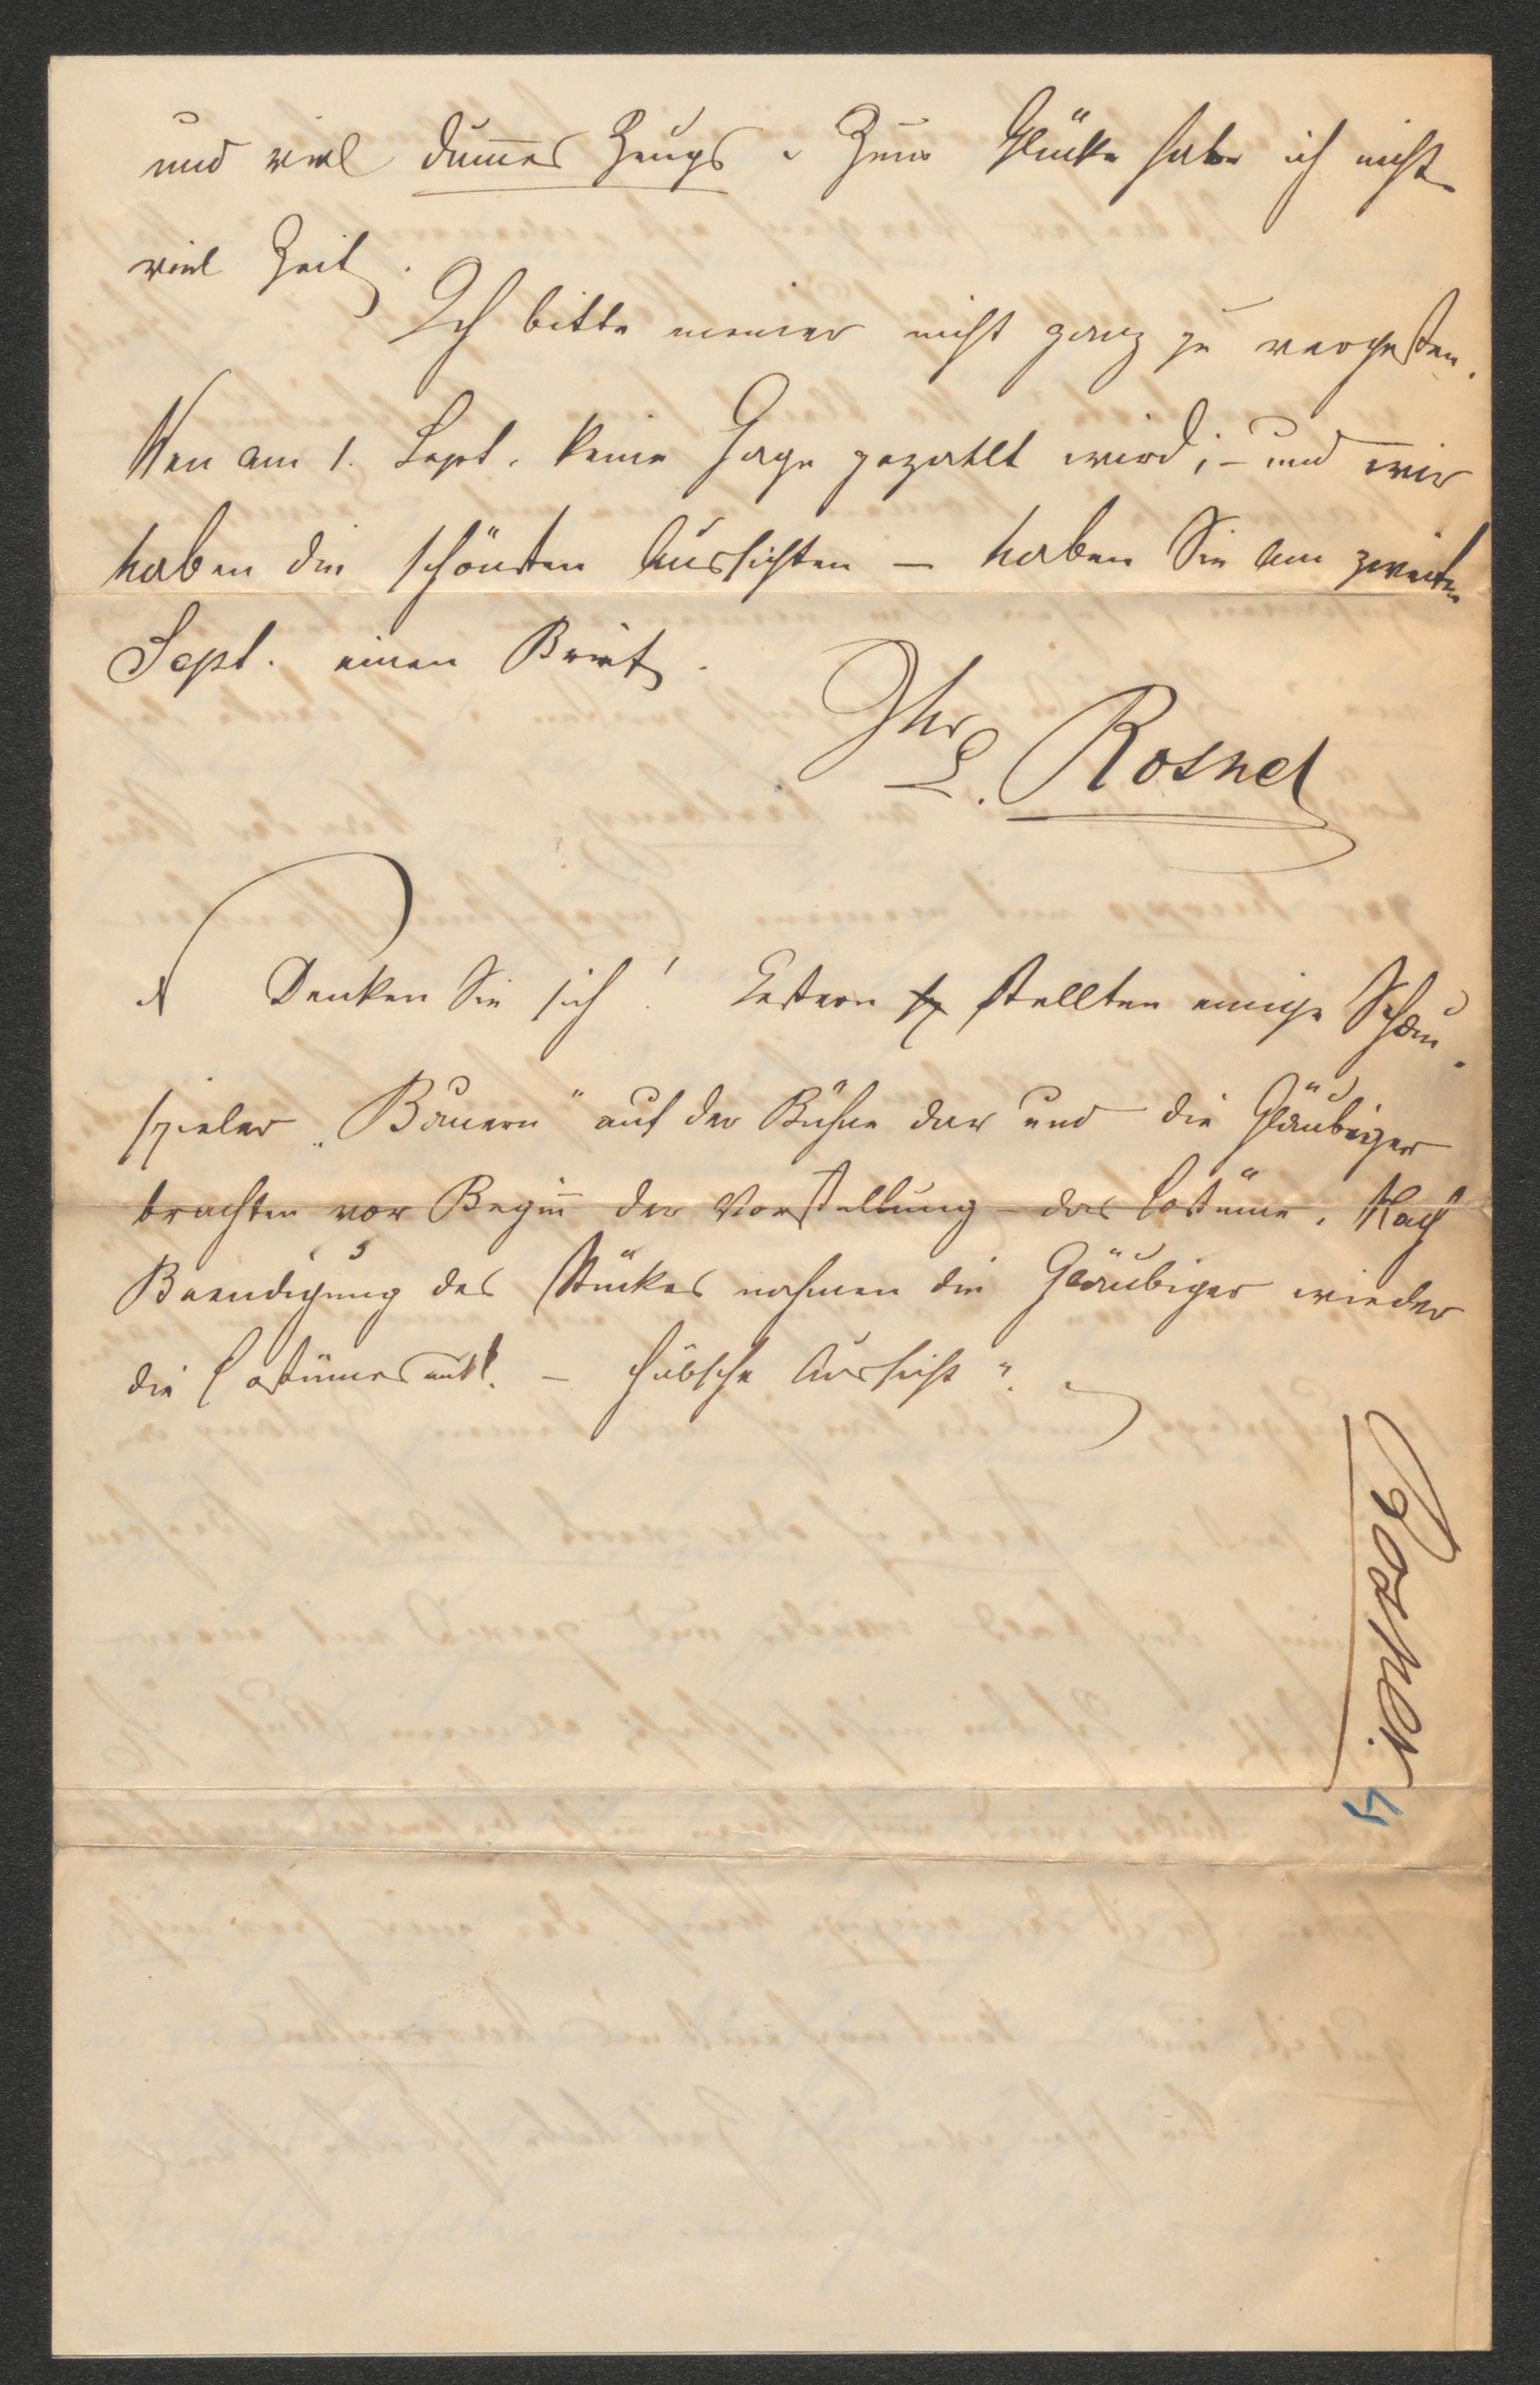 und viel dum̅es Zeugs. Zum Glücke habe ich nicht
viel Zeit.
Ich bitte meiner nicht ganz zu vergessen.
Wen am 1. Sept. keine Gage gezahlt wird; – und wir
haben die schönsten Aussichten – haben Sie am zweiten
Sept. einen Brief.
Ihr
L. Rosner
Denken Sie sich! Gestern stellten einige Schau-
spieler „Bauern“ auf der Bühne dar und die Gläubiger
brachten vor Begin̅ der Vorstellung das Costüme. Nach
Beendigung des Stückes nahmen die Gläubiger wieder
die Costümes mit!. – Hübsche Aussicht“.
Rosner.
4